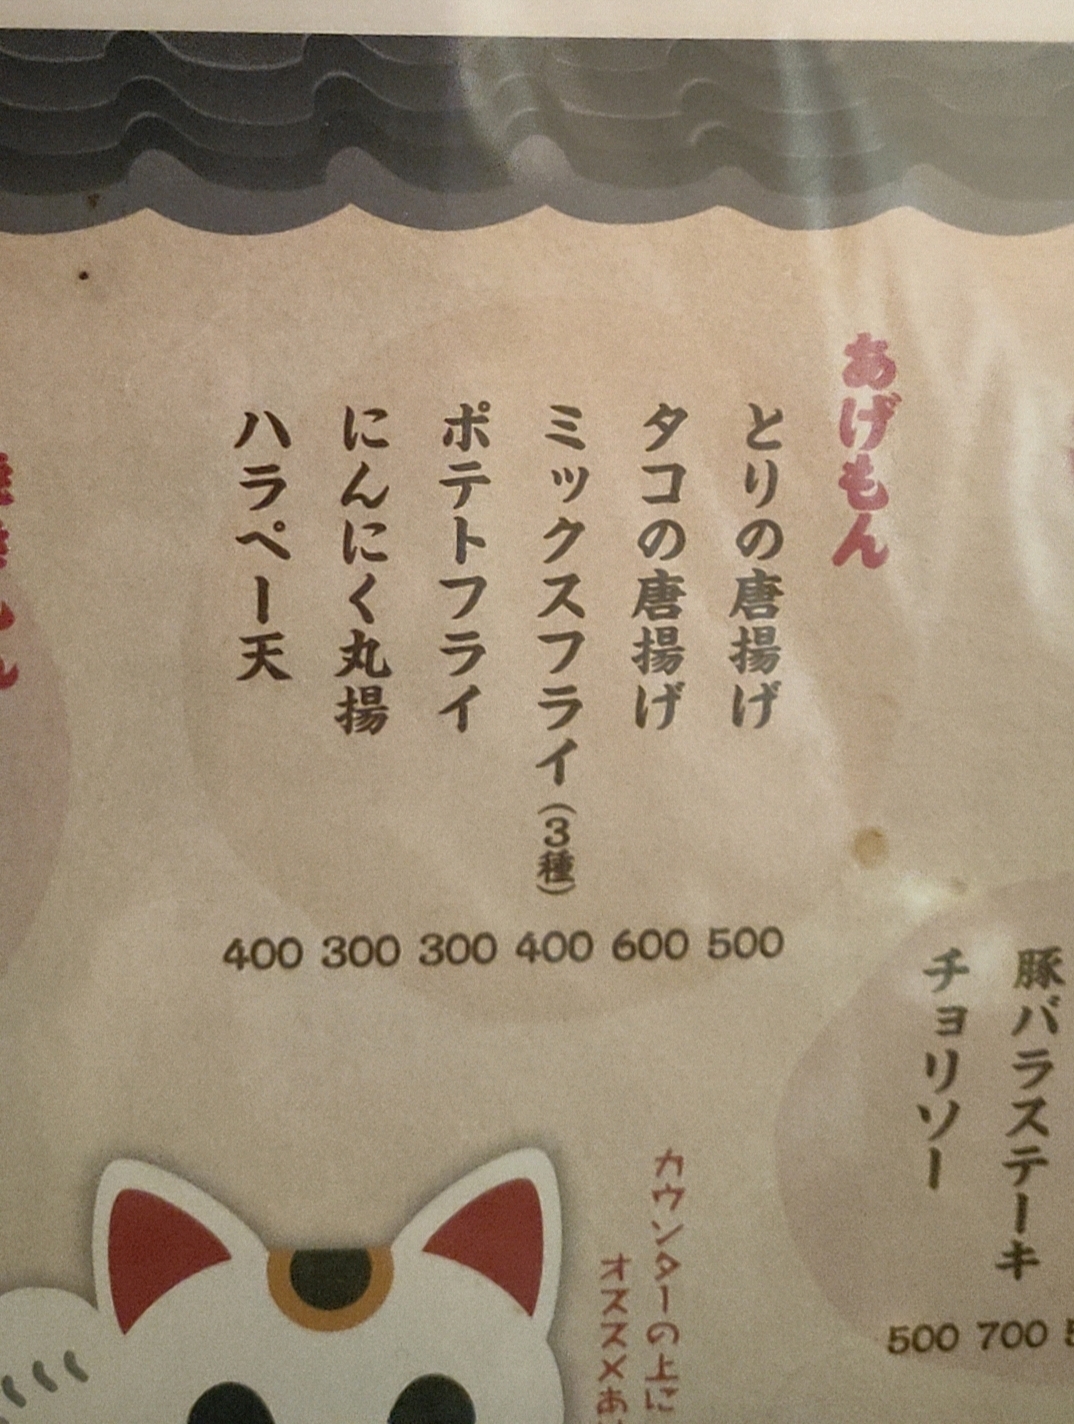 あげもん
とりの唐揚げ 500
タコの唐揚げ 600
ミックスフライ(3種) 400
ポテトフライ 300
にんにく丸揚 300
ハラペー天 400
豚バラステーキ 700
チョリソー 500
カウンターの上に
オススメあ